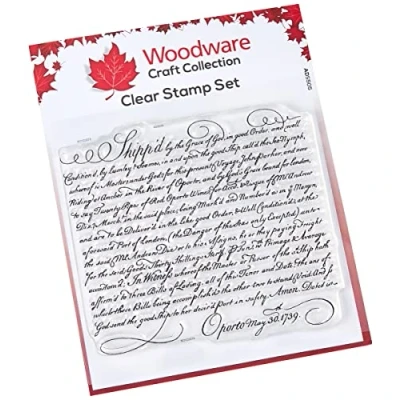 Woodware
Craft Collection
Clear Stamp Set
Shipp'd by the Grace of God, in good Order, and well
Condition'd, by
in and upon the good Ship call'd the
whereof is Master under God for this present Voyage John
Riding at Anchor in the River of Oporto, and by God's Grace bound for London,
to say Twenty Pipes of Red Oporto Wines for
being Mark'd and Number'd as in y Margin,
and are to be Deliver'd in the like good Order, & well Condition'd, at the
foresaid Port of London, (the Danger of the Seas only Excepted) unto
the said Mr. or to his Assigns, he or they paying Freight
for the said Goods Thirty Shillings
accustom'd. In Witness whereof the Master or Purser of the said Ship hath
affirm'd to three Bills of Lading, all of this Tenor and Date, the one of
which three Bills being accomplish'd, the other two to stand Void. And so
God send the good Ship to her desir'd Port in safety. Amen. Dated in
Oporto May 30, 1739.